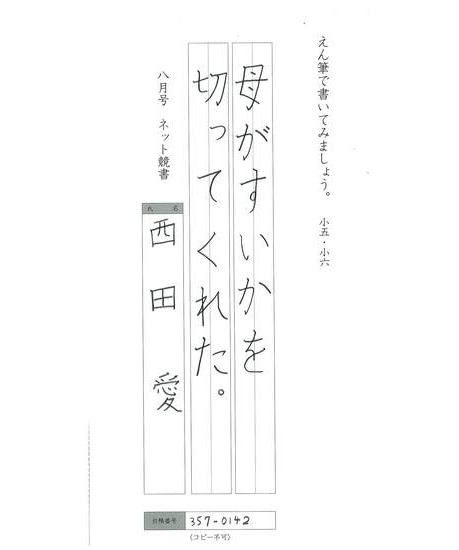 えん筆で書いてみましょう。 小五・小六
母がすいかを
切ってくれた。
八月号 ネット競書
氏名
西田 愛
台帳番号 357-0142
(コピー不可)